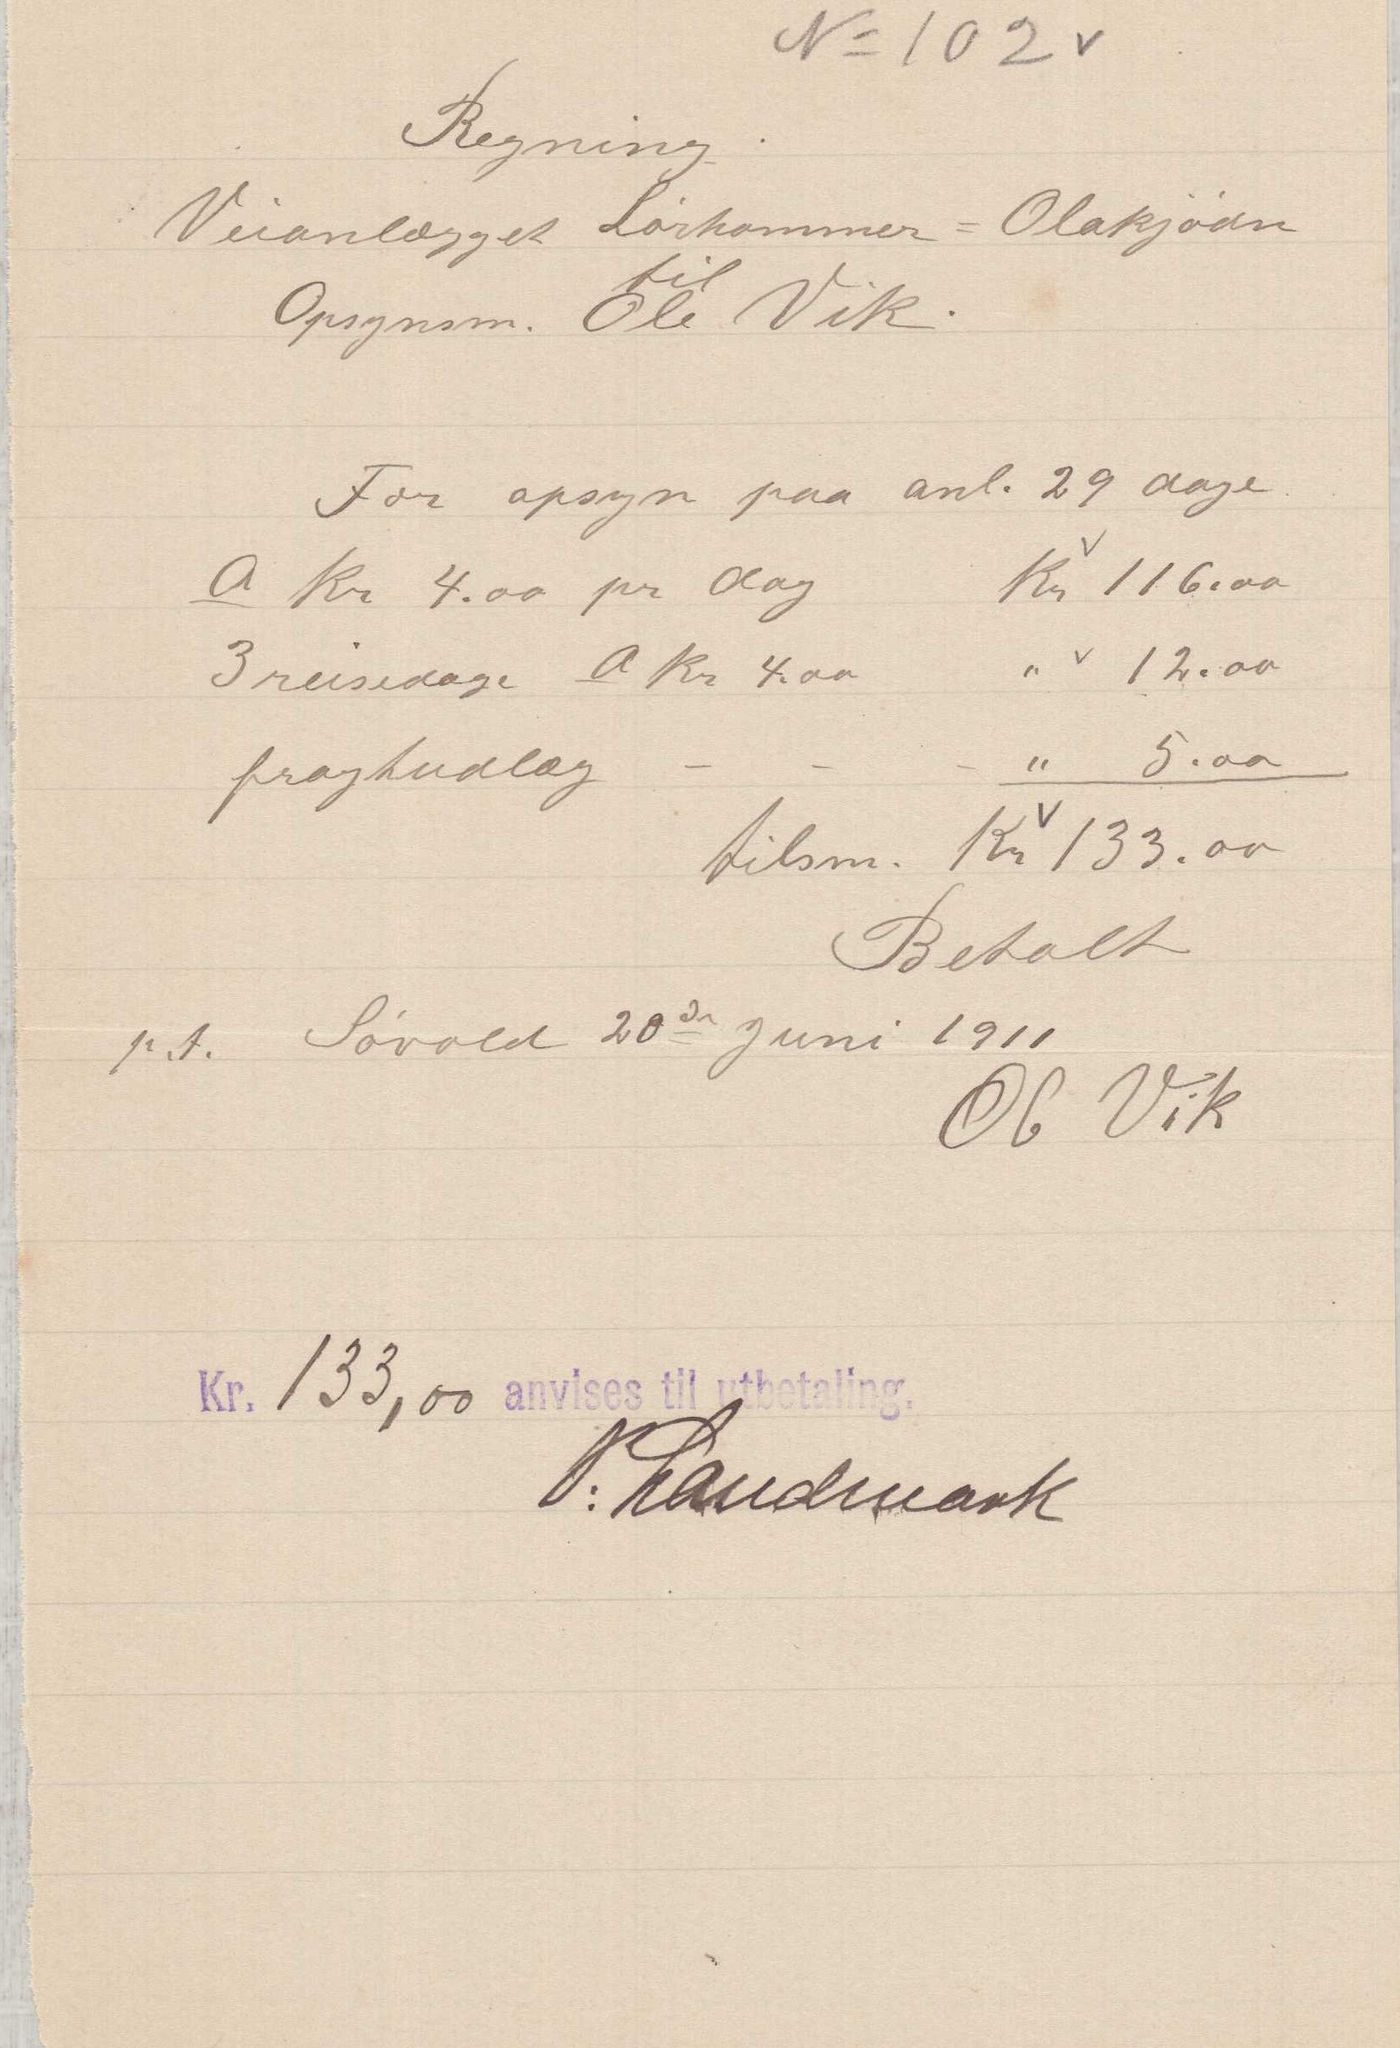 No 102 v
Regning.
Veianlægget Sørhammer = Olakjødn
til
Opsynsm. Ole Vik.
For opsyn paa anl. 29 dage
A Kr 4.00 pr dag Kr v 116.00
3 reisedage A Kr 4.00 " v 12.00
fragtudlæg - - - " 5.00
tilsm. Kr v 133.00
Betalt
p.t. Søvold 20de Juni 1911
O Vik
Kr. 133,00 anvises til utbetaling.
N. Landmark